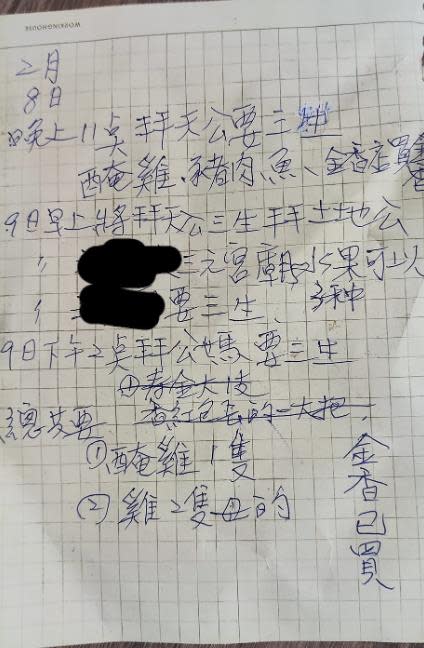 WORKINGHOUSE
2月
8日
晚上11點拜天公要三牲
醃雞、豬肉、魚、金香店買
9日早上將拜天公三生拜土地公
〃 三元宮廟水果可以
多种
〃 要三生、
9日下午2點拜公媽要三生
①壽金大伎
總共要 香紅包長的一大把
①醃雞1隻
②雞2隻母的
金香已買